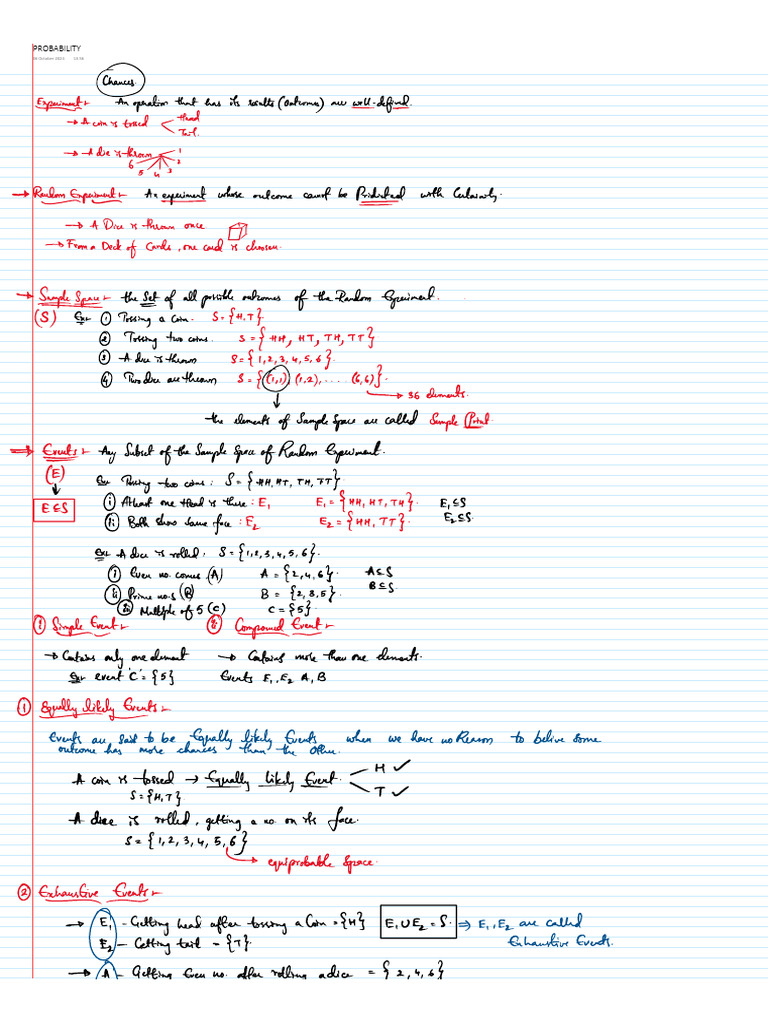 PROBABILITY
Chances.
Experiment :- An operation that has its results (outcomes) are well-defined.
→ A coin is tossed Head
Tail.
→ A die is thrown 1
2
3
4
5
6
→ Random Experiment :- An experiment whose outcome cannot be Pridicted with Certainity.
→ A Dice is thrown once
→ From a Deck of Cards, one card is choosen.
→ Sample Space :- the Set of all possible outcomes of the Random Experiment.
(S) Ex:- ① Tossing a Coin. S = {H, T}.
② Tossing two coins. S = {HH, HT, TH, TT}
③ A dice is thrown S = {1, 2, 3, 4, 5, 6}.
④ Two dice are thrown S = {(1,1), (1,2), ..... (6,6)}.
→ 36 elements.
the elements of Sample Space are called Sample Point.
⇒ Events :- Any Subset of the Sample Space of Random Experiment.
(E)
E ⊆ S
Ex: Tossing two coins: S = {HH, HT, TH, TT}
(i) Atleast one Head is there : E₁ E₁ = {HH, HT, TH}. E₁ ⊆ S
(ii) Both show same face : E₂ E₂ = {HH, TT}. E₂ ⊆ S.
Ex: A dice is rolled: S = {1, 2, 3, 4, 5, 6}.
(i) Even no. comes (A) A = {2, 4, 6}. A ⊆ S
(ii) Prime no.s (B) B = {2, 3, 5}. B ⊆ S
(iii) Multiple of 5 (C) C = {5}.
(i) Simple Event :- (ii) Compound Event :-
→ Contains only one element → Contains more than one elements.
Ex:- event 'C' = {5} Events E₁, E₂ A, B
① Equally likely Events :-
Events are said to be Equally likely Events when we have no Reason to belive some
outcome has more chances than the Other.
A coin is tossed → Equally likely Event. H ✓
T ✓
S = {H, T}.
A dice is rolled, getting a no. on its face.
S = {1, 2, 3, 4, 5, 6}
→ equiprobable space.
② Exhaustive Events :-
→ E₁ - Getting head after tossing a Coin = {H} E₁ ∪ E₂ = S. ⇒ E₁, E₂ are called
E₂ - Getting tail - {T}. Exhaustive Events.
→ A - Getting Even no. after rolling a dice = {2, 4, 6}